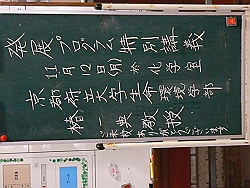 発展プログラム特別講義
11月12日(月) 於 化学室
京都府立大学生命環境学部
椿 一典 教授